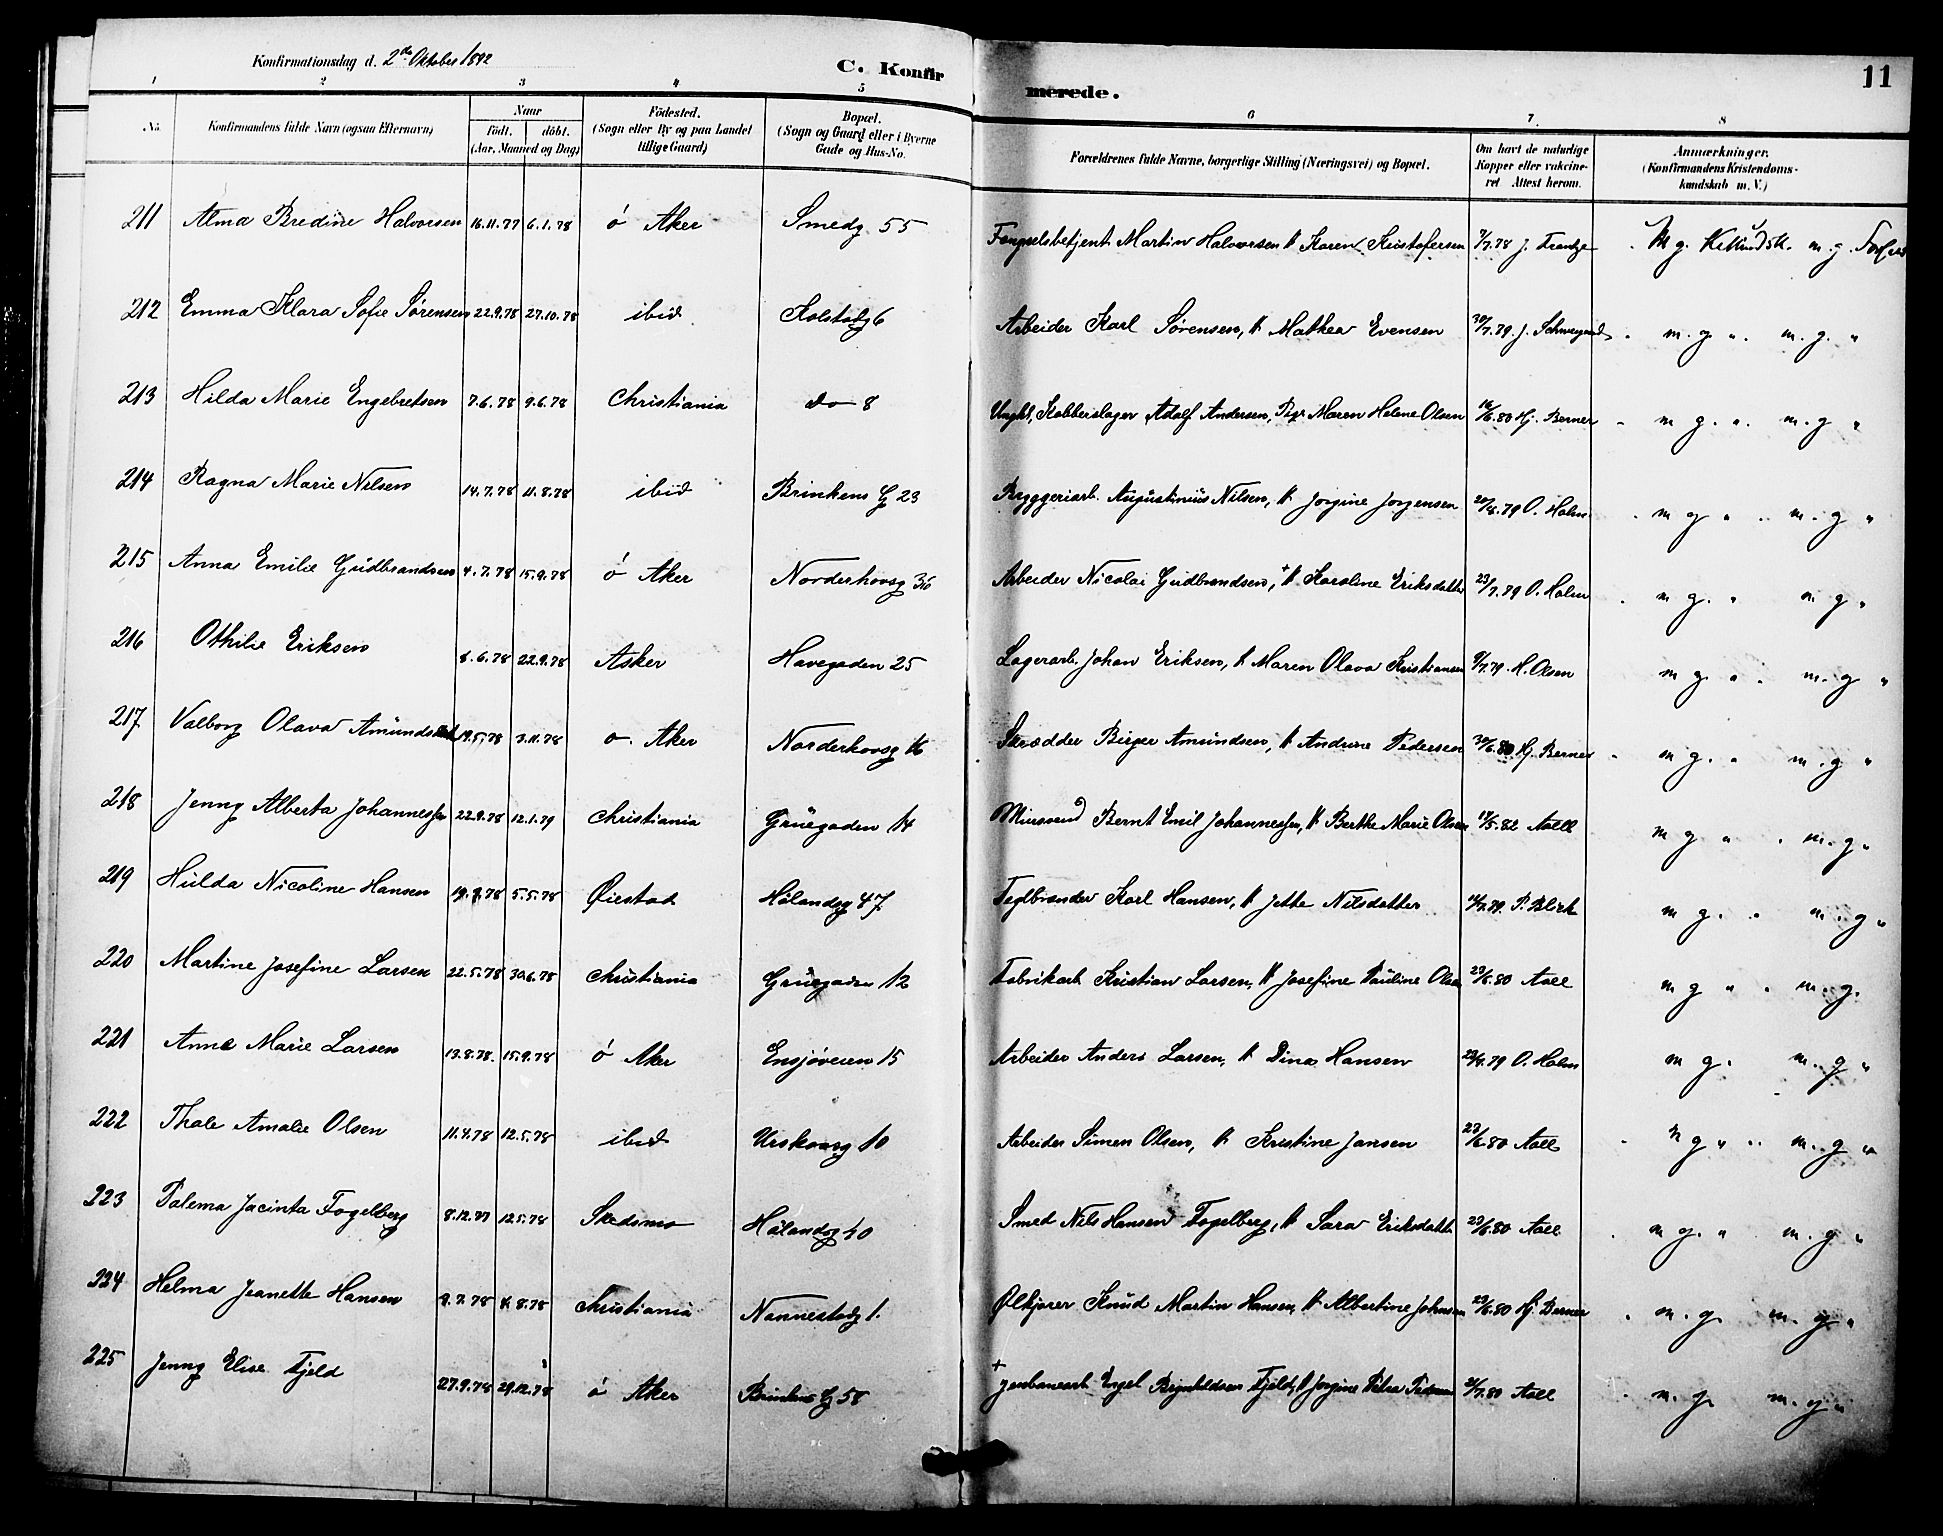 Konfirmationsdag d. 2den Oktober 1892
C. Konfir
merede.
11
1 2 3 4 5 6 7 8
No.
Konfirmandens fulde Navn (ogsaa Efternavn)
Naar
födt. döbt.
(Aar, Maaned og Dag)
Födested.
(Sogn eller By og paa Landet
tillige Gaard)
Bopæl.
(Sogn og Gaard eller i Byerne
Gade og Hus-No.
Forældrenes fulde Navne, borgerlige Stilling (Næringsvei) og Bopæl.
Om havt de naturlige
Kopper eller vakcine-
ret Attest herom.
Anmærkninger.
(Konfirmandens Kristendoms-
kundskab m. V.)
211 Alma Bredine Halvorsen 16.11.77 6.1.78 ó Aker Smedg 55 Fængselsbetjent Martin Halvorsen & Karen Kristofersen 7/7.78 J. Frantze M g. m. g.
212 Emma Klara Sofie Sørensen 22.9.78 27.10.78 ibid Kolstadg 6 Arbeider Karl Sørensen, & Mathea Evensen 30/7.79 J. Schweigaard m. g " m. g. "
213 Hilda Marie Engebretsen 7.6.78 9.6.78 Christiania do 8 Ungkl, Kobberslager Adolf Andersen, Pige Maren Helene Olsen 16/6.80 Hj. Berner m g. " m. g "
214 Ragna Marie Nilsen 14.7.78 11.8.78 ibid Brinkens G 23 Bryggeriarb. Augustinius Nilsen, & Jorgine Jorgensen 20/8.79 O. Holm m g " m. g "
215 Anna Emilie Gudbrandsen 4.7.78 15.9.78 ó Aker Norderhovsg 36 Arbeider Nicolai Gudbrandsen, + & Karoline Eriksdatter 23/7.79 O. Holm m g. " m g "
216 Othilie Eriksen 8.6.78 22.9.78 Asker Havegaden 25 Lagerarb. Johan Eriksen, & Maren Olava Kristiansen 9/7.79. H. Olsen m g. " m. g "
217. Valborg Olava Amundsen 19.5.78 3.11.78 o. Aker Norderhovsg 16 Skrædder Birger Amundsen, & Andrine Pedersen 30/6.80 Hj. Berner m g. " m. g "
218 Jenny Alberta Johannessen 22.9.78 12.1.79 Christiania Grüegaden 14 Murersvend Bernt Emil Johannessen, & Berthe Marie Olsen 17/5.82 Aall m g " m. g "
219 Hulda Nicoline Hansen 19.9.78 5.5.78 Øiestad Hølandsg 47 Teglbrænder Karl Hansen, & Jette Nilsdatter 16/7.79. P. Blich m g. " m. g "
220 Martine Josefine Larsen 22.5.78 30.6.78 Christiania Grüegaden 12 Fabrikarb Kristian Larsen, & Josefine Pauline Olsen 23/6.80 Aall m g " m. g.
221 Anna Marie Larsen 13.8.78. 15.9.78 ó Aker Ensjøveien 15 Arbeider Anders Larsen, & Dina Hansen 23/9.79 O. Holm m g. m. g "
222 Thale Amalie Olsen 11.4.78 12.5.78 ibid Urskougg 10 Arbeider Simen Olsen, & Kristine Jansen 23/6.80 Aall M g " m. g "
223 Palema Jacinta Fogelberg 8.12.77 12.5.78 Skedsmo Hølandsg 40 Smed Nils Hansen Fogelberg, & Sara Eriksdatter 23/6.80 Aall m g. " m. g "
224 Helma Jeanette Hansen 9.7.78 4.8.78 Christiania Nannestadg 1. Ølkjører Knud Martin Hansen, & Albertine Johnsen 23/6.80 Hj. Berner m. g. m. g "
225 Jenny Elise Fjeld 27.9.78 29.12.78 ó Aker Brinkens G 58 + Jernbanearb Engel Brynhildsen Fjeld, & Jorgine Petra Pedersen 21/7.80 Aall m. g. m. g "